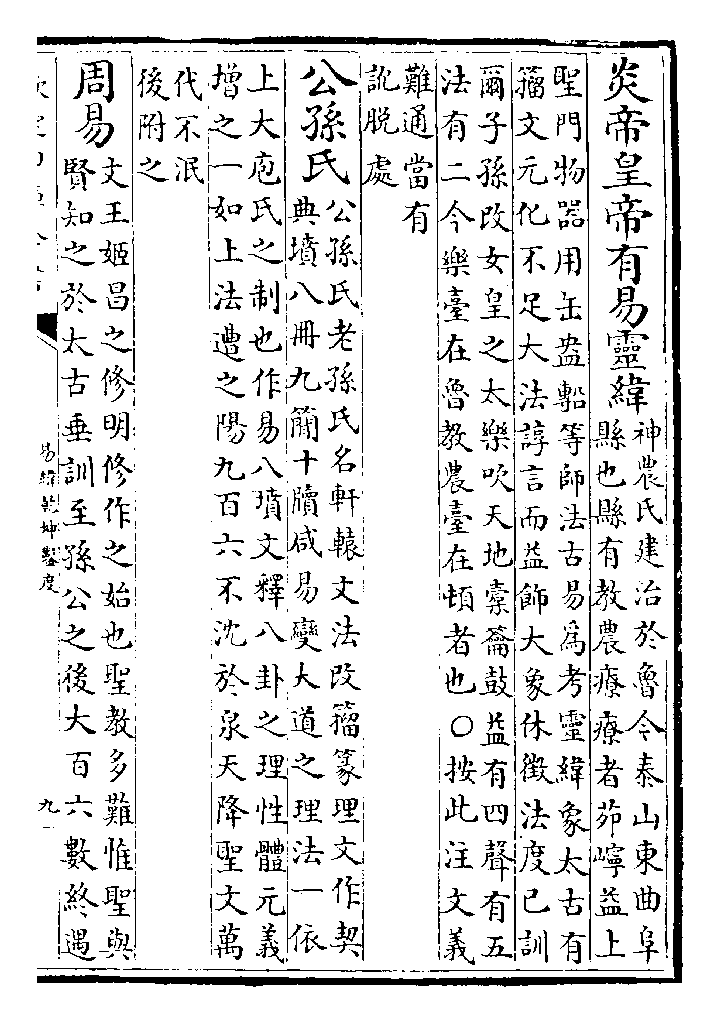 炎帝皇帝有易靈緯神農氏建治於魯今泰山東曲阜
縣也縣有教農療療者茆嶸益上
聖門物器用缶盎䡖等師法古易爲考靈緯象太古有
籀文元化不足大法諄言而益飾大象休徴法度已訓
爾子孫改女皇之太樂吹天地橐籥鼓益有四聲有五
法有二今樂臺在魯教農臺在頓者也〇按此注文義
難通當有
訛脱處
公孫氏公孫氏老孫氏名軒轅文法改籀篆理文作契
典墳八冊九簡十牘咸易變大道之理法一依
上大庖氏之制也作易八墳文釋八卦之理性體元義
增之一如上法遭之陽九百六不沈於泉天降聖文萬
代不泯
後附之
周易文王姬昌之修明修作之始也聖教多難惟聖與
賢知之於太古垂訓至孫公之後大百六數終遇
易緯乾坤鑿度
九